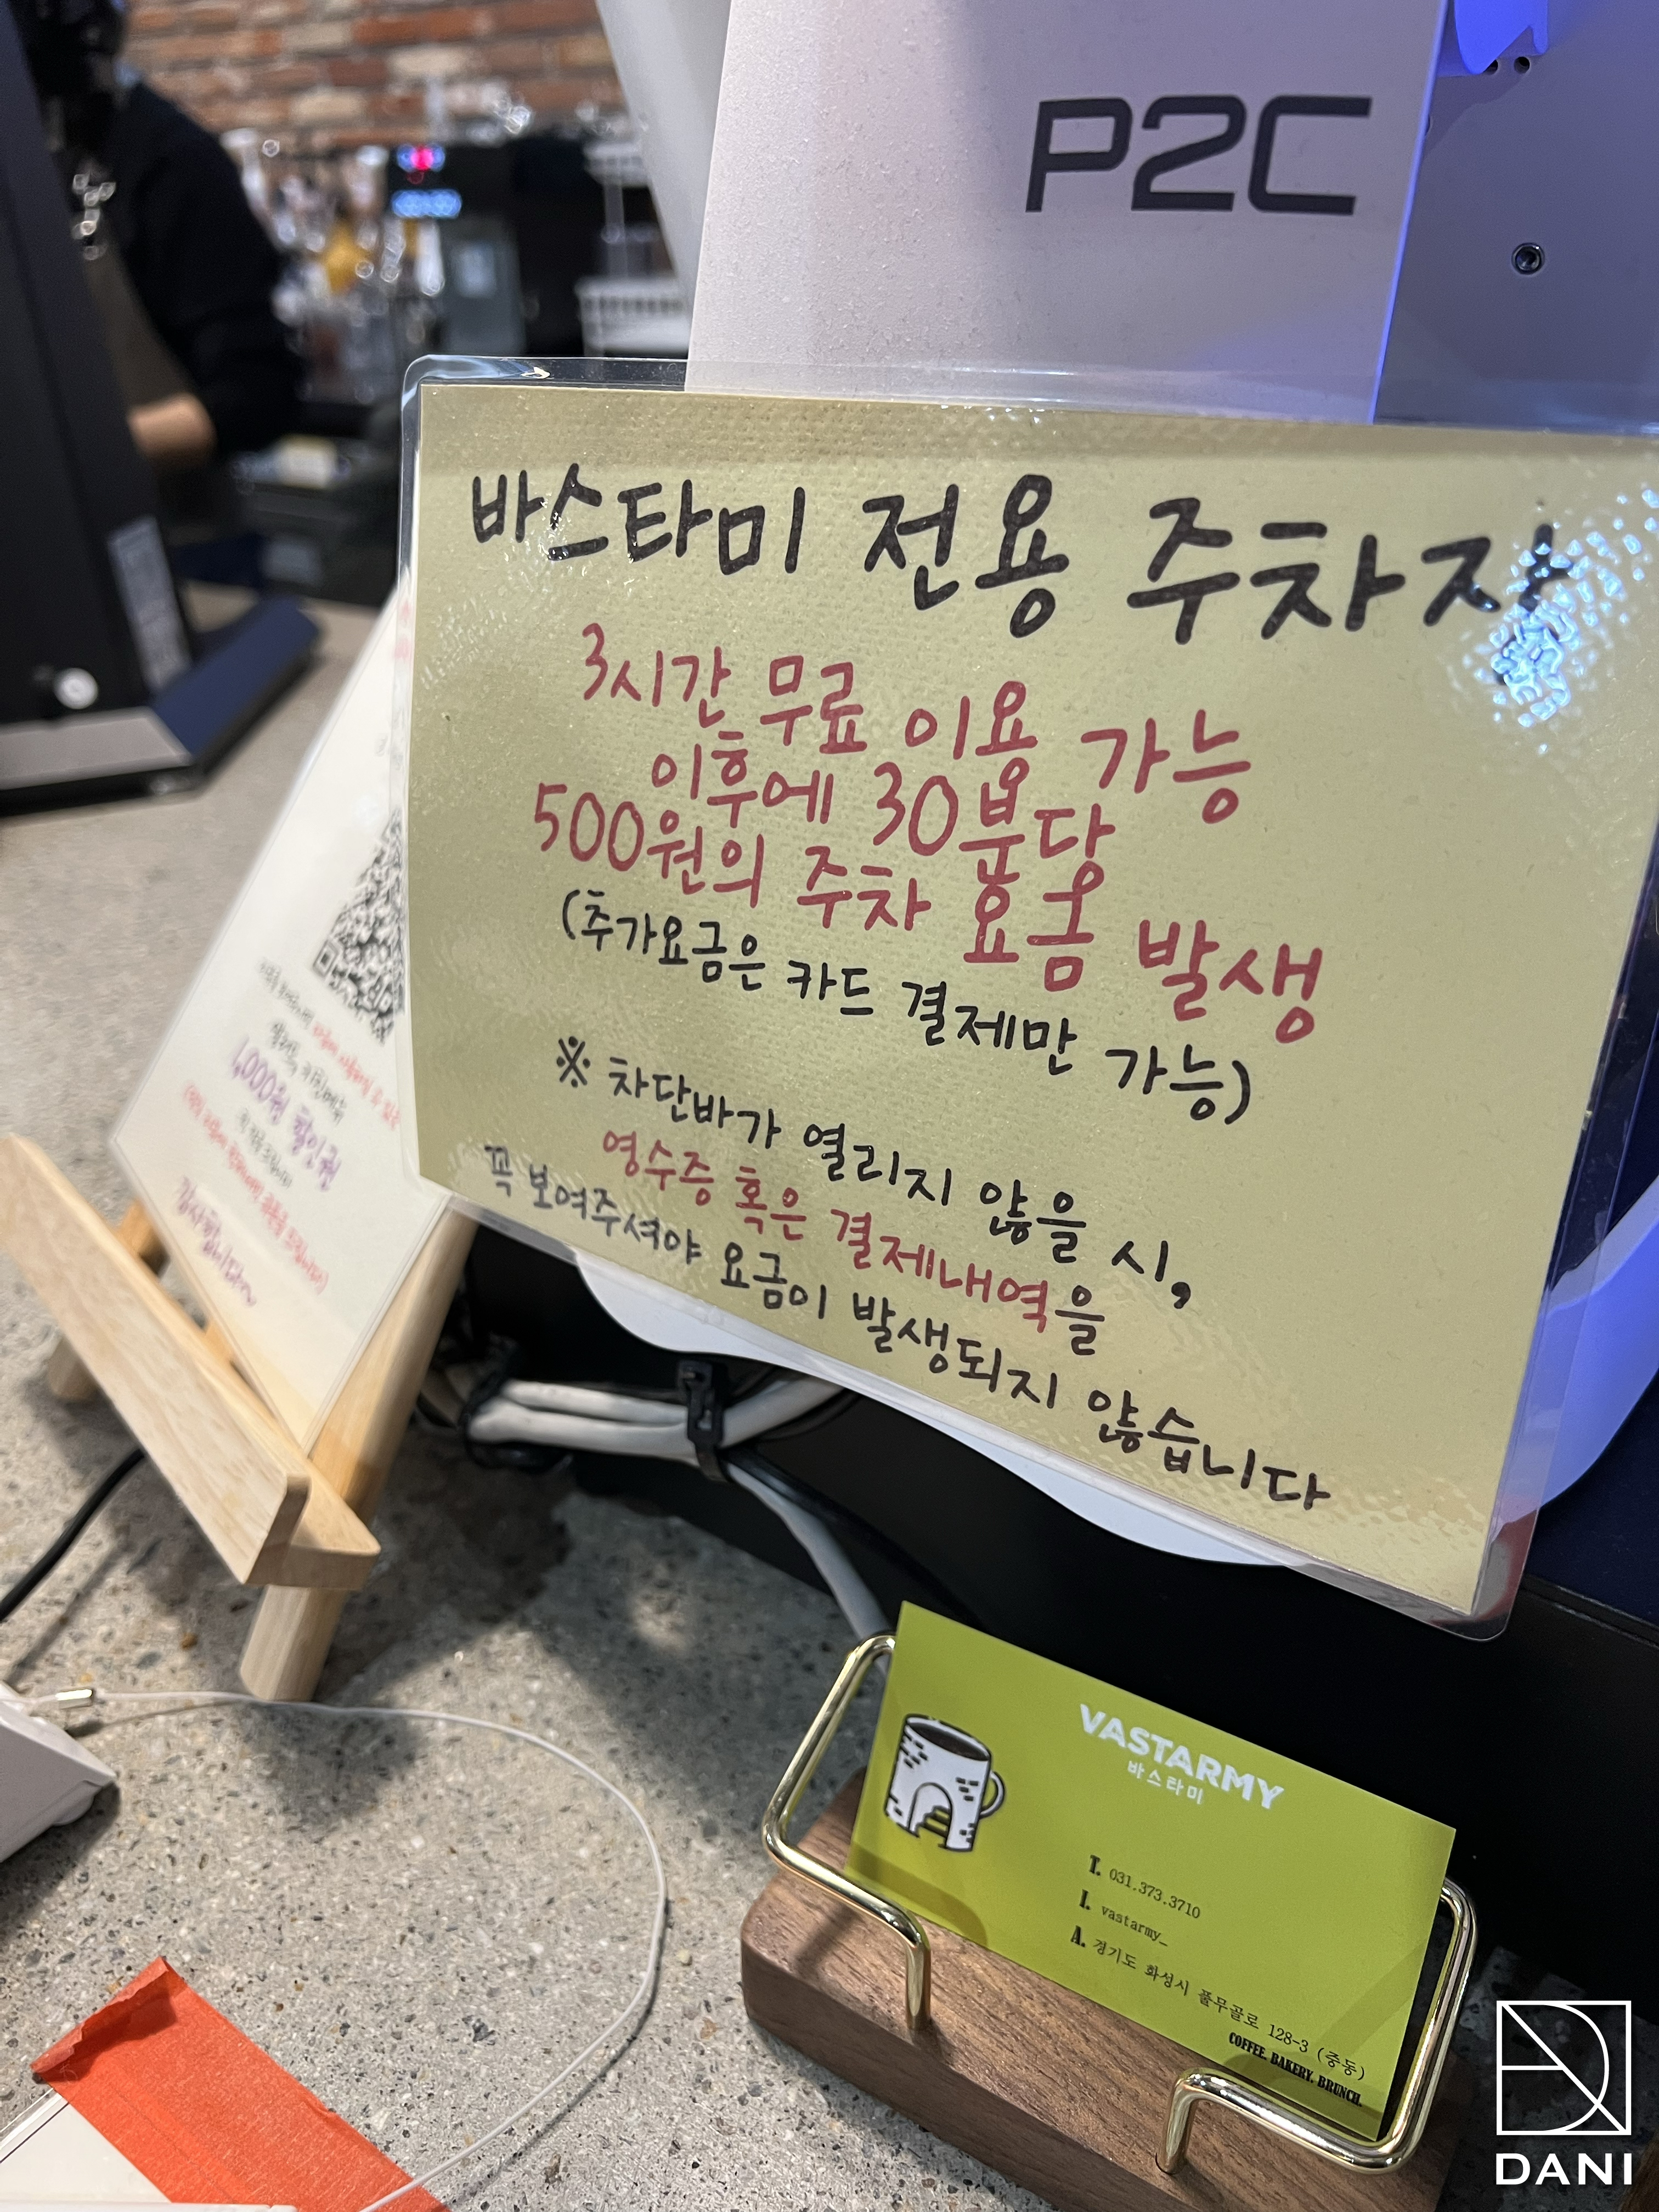 P2C
바스타미 전용 주차장
3시간 무료 이용 가능
이후에 30분당
500원의 주차 요금 발생
(추가요금은 카드 결제만 가능)
※ 차단바가 열리지 않을 시,
영수증 혹은 결제내역을
꼭 보여주셔야 요금이 발생되지 않습니다
1,000원 할인권
감사합니다~
VASTARMY
바스타미
T. 031.373.3710
I. vastarmy_
A. 경기도 화성시 풀무골로 128-3 (중동)
COFFEE. BAKERY. BRUNCH.
DANI